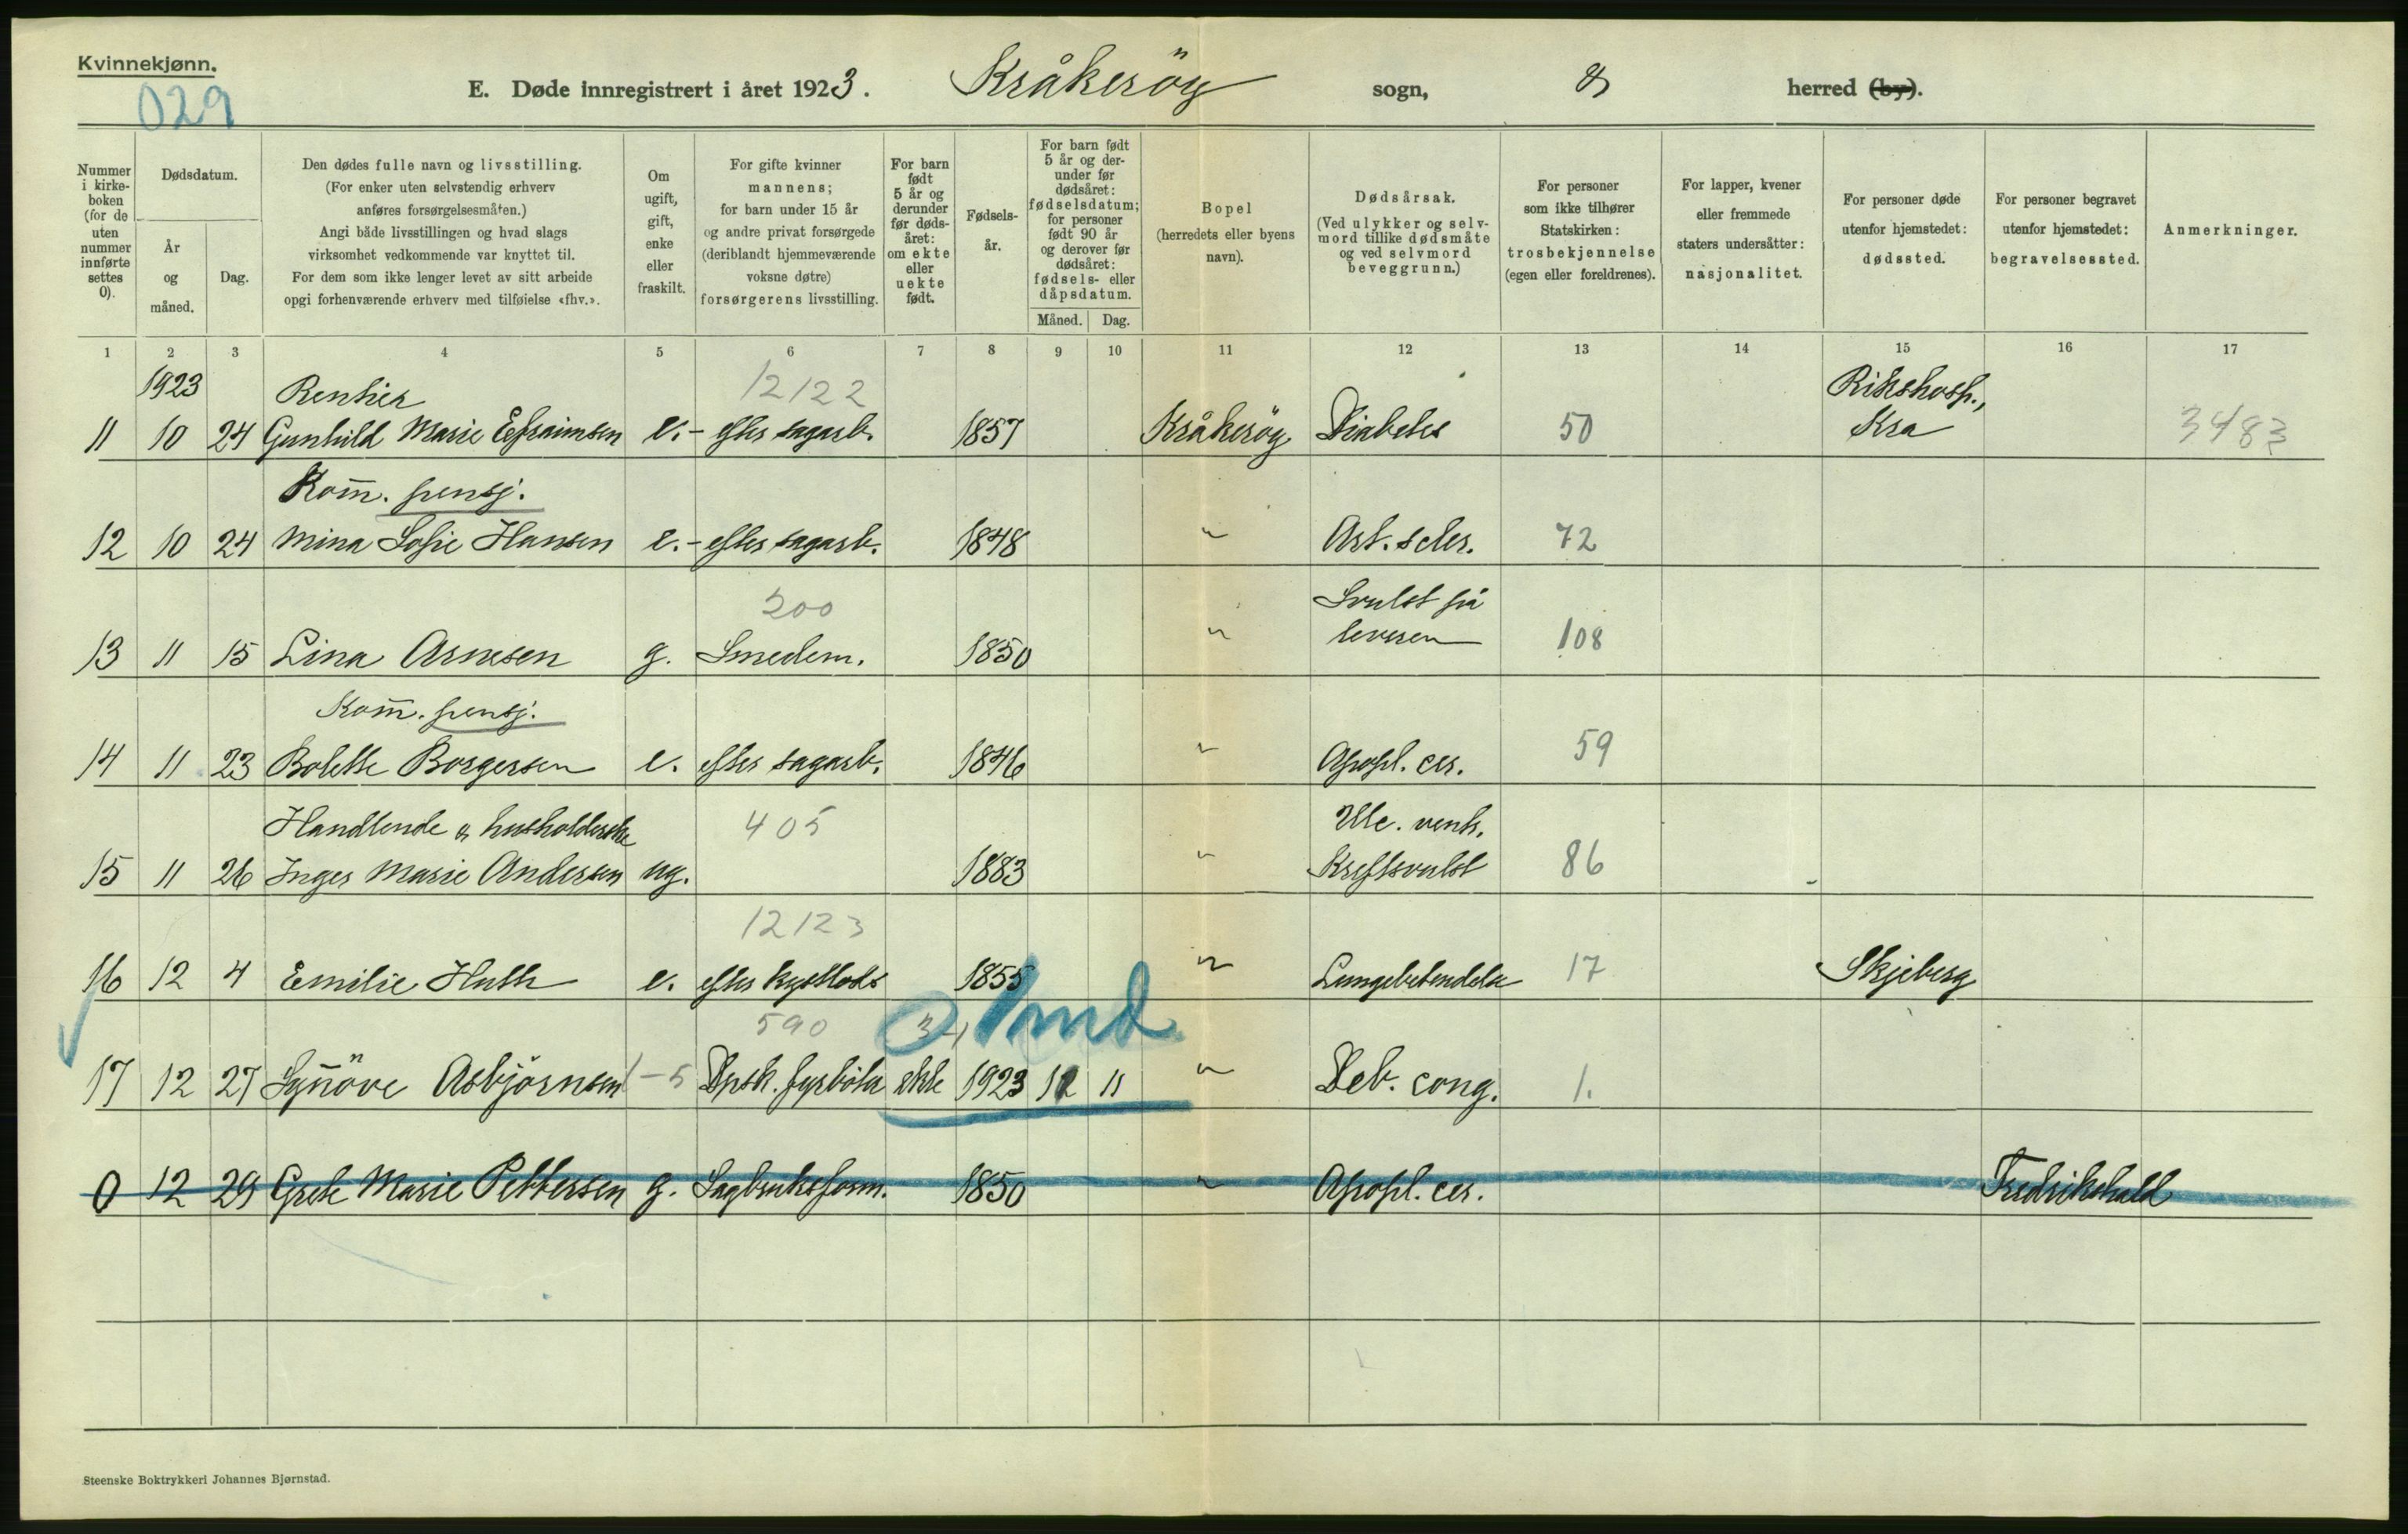 Kvinnekjønn.
029
E. Døde innregistrert i året 1923. Kråkeröy sogn, & herred (by).
Nummer i kirke-boken (for de uten nummer innførte settes 0).
Dødsdatum.
År og måned.
Dag.
Den dødes fulle navn og livsstilling.
(For enker uten selvstendig erhverv
anføres forsørgelsesmåten.)
Angi både livsstillingen og hvad slags
virksomhet vedkommende var knyttet til.
For dem som ikke lenger levet av sitt arbeide
opgi forhenværende erhverv med tilføielse «fhv.».
Om ugift, gift, enke eller fraskilt.
For gifte kvinner
mannens;
for barn under 15 år
og andre privat forsørgede
(deriblandt hjemmeværende
voksne døtre)
forsørgerens livsstilling.
For barn født 5 år og derunder før døds-året: om ekte eller uekte født.
Fødsels-år.
For barn født 5 år og der-under før dødsåret: fødselsdatum; for personer født 90 år og derover før dødsåret: fødsels- eller dåpsdatum.
Måned. Dag.
Bopel
(herredets eller byens
navn).
Dødsårsak.
(Ved ulykker og selv-
mord tillike dødsmåte
og ved selvmord
beveggrunn.)
For personer
som ikke tilhører
Statskirken:
trosbekjennelse
(egen eller foreldrenes).
For lapper, kvener
eller fremmede
staters undersåtter:
nasjonalitet.
For personer døde
utenfor hjemstedet:
dødssted.
For personer begravet
utenfor hjemstedet:
begravelsessted.
Anmerkninger.
1 2 3 4 5 6 7 8 9 10 11 12 13 14 15 16 17
1923 Rentier 12122 Rikshosp.,
11 10 24 Gunhild Marie Efraimsen e.- efter sagarb. 1857 Kråkeröy Diabetes 50 Kra 3483
Kom. pensj.
12 10 24 Mina Sofie Hansen e.- efter sagarb. 1848 " Art. scler. 72
200 Svulst på
13 11 15 Lina Arnesen g. Smedem. 1850 " leveren 108
Kom. pensj.
14 11 23 Bolette Borgersen e. efter sagarb. 1846 " Apopl. cer. 59
Handlende & husholderske 405 Ulc. ventr.
15 11 26 Inger Marie Andersen ug. 1883 " Kreftsvulst 86
12123
16 12 4 Emilie Huth e. efter kystlods 1855 " Lungebetendelse 17 Skjeberg
590 1 md
17 12 27 Synnöve Asbjörnsen 1-5 Dpsk. fyrböter ekte 1923 12 11 " Deb. cong. 1.
0 12 29 Grete Marie Pettersen g. Sagbruksform. 1850 " Apopl. cer. Fredrikshald
Steenske Boktrykkeri Johannes Bjørnstad.